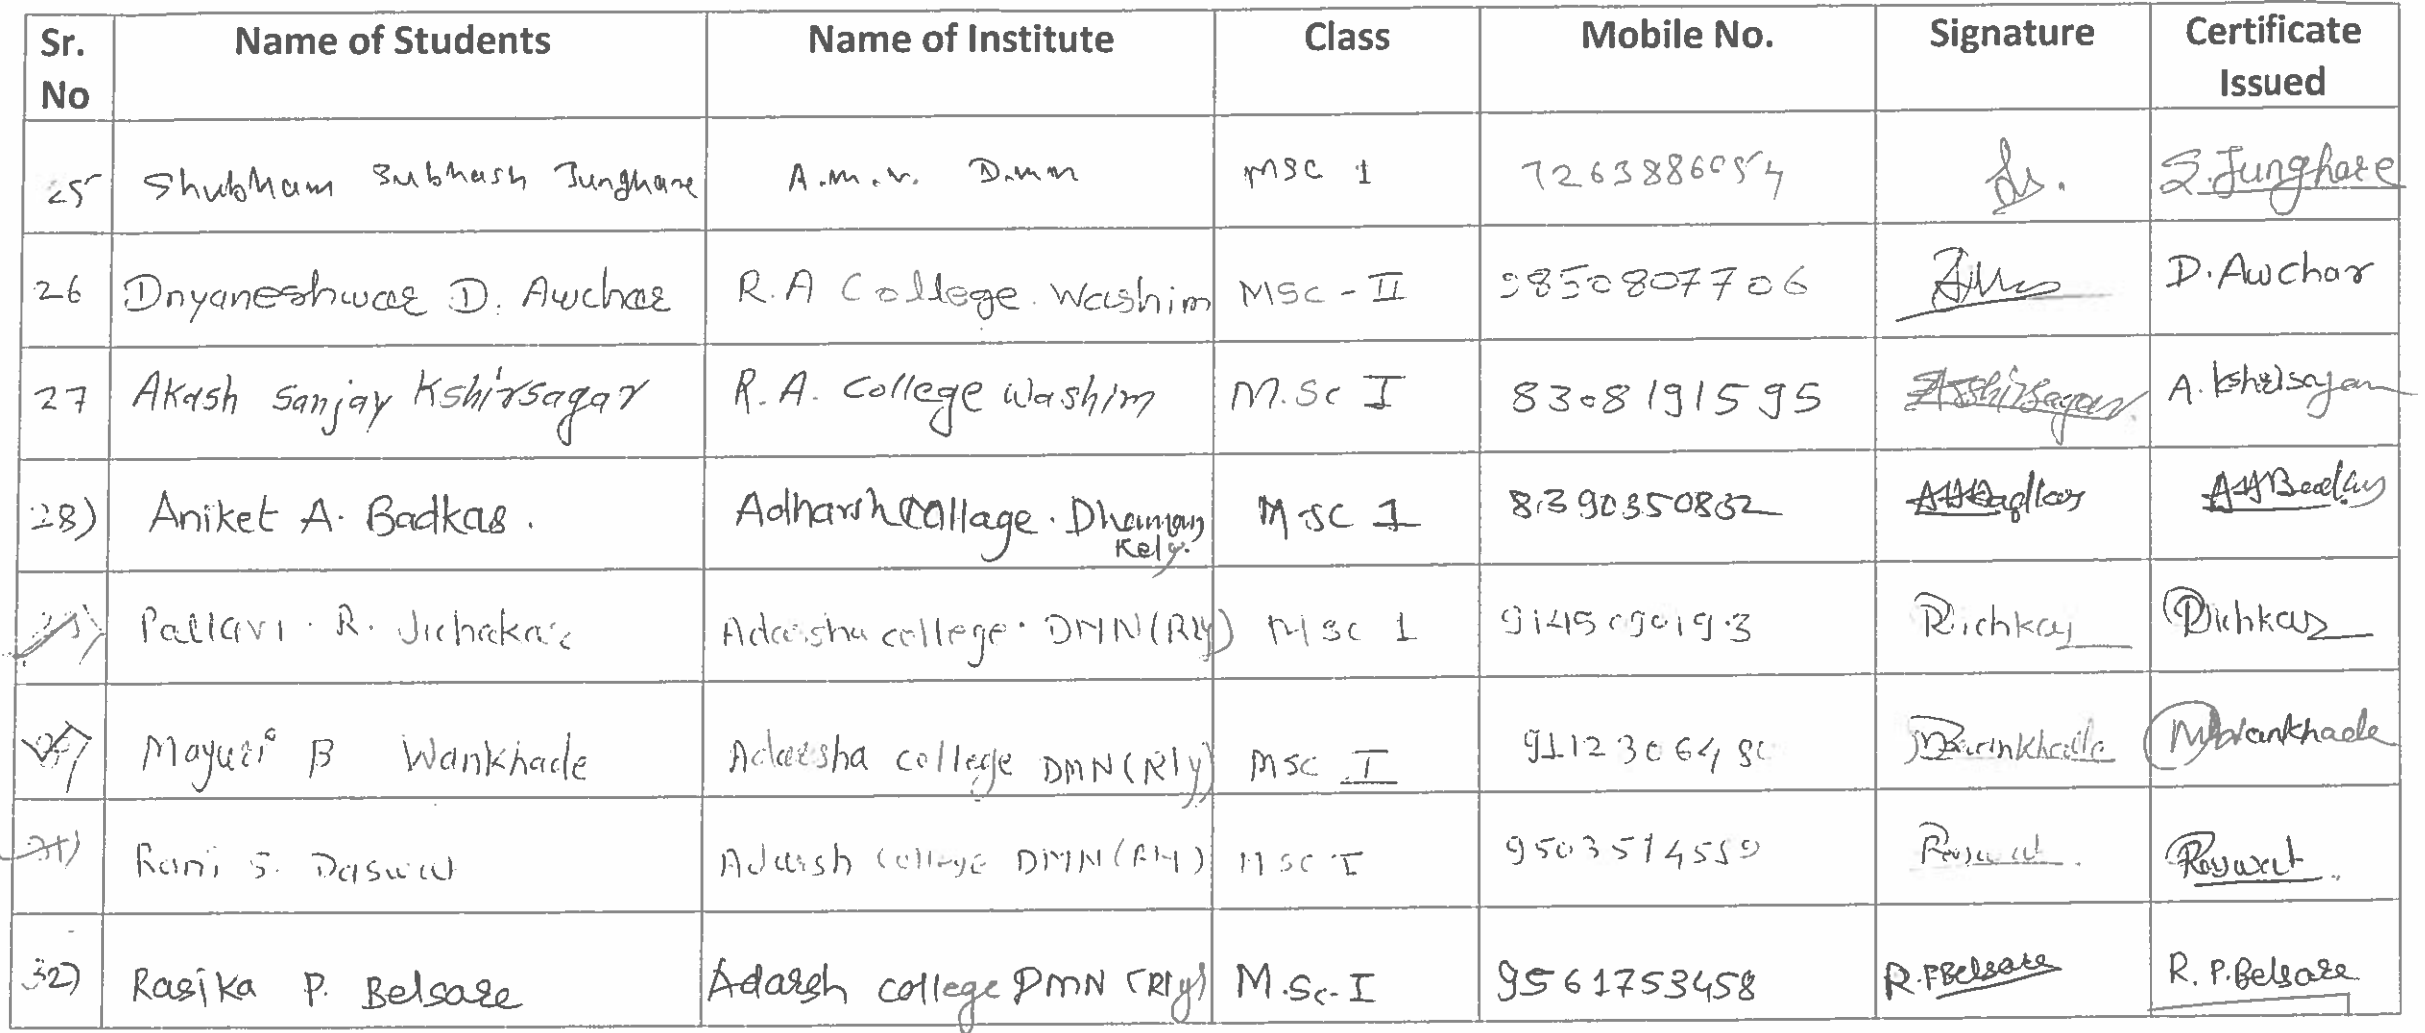 Sr. No Name of Students Name of Institute Class Mobile No. Signature Certificate Issued
25 Shubham Subhash Junghare A.m.v. D.mn MSC 1 7263886054 S.Junghare
26 Dnyaneshwar D. Awchar R.A College. Washim MSC - II 9850807706 D. Awchar
27 Akash Sanjay Kshirsagar R.A. College Washim M.Sc I 8308191595 Kshirsagar A. Kshirsagar
28) Aniket A. Badkas. Adharsh Collage. Dhamang Kely. MSC 1 8390350832
Pallavi. R. Adarsha college. DMN(Rly) MSC 1 Richkar
Mayuri B Wankhade Adarsha college DMN(Rly) MSC I Wankhade Wankhade
31) Rani S. Adarsh College DMN (Rly) MSC I
32) Rasika P. Belsare Adarsh college DMN (Rly) M.Sc-I 9561753458 R.PBelsare R. P.Belsare